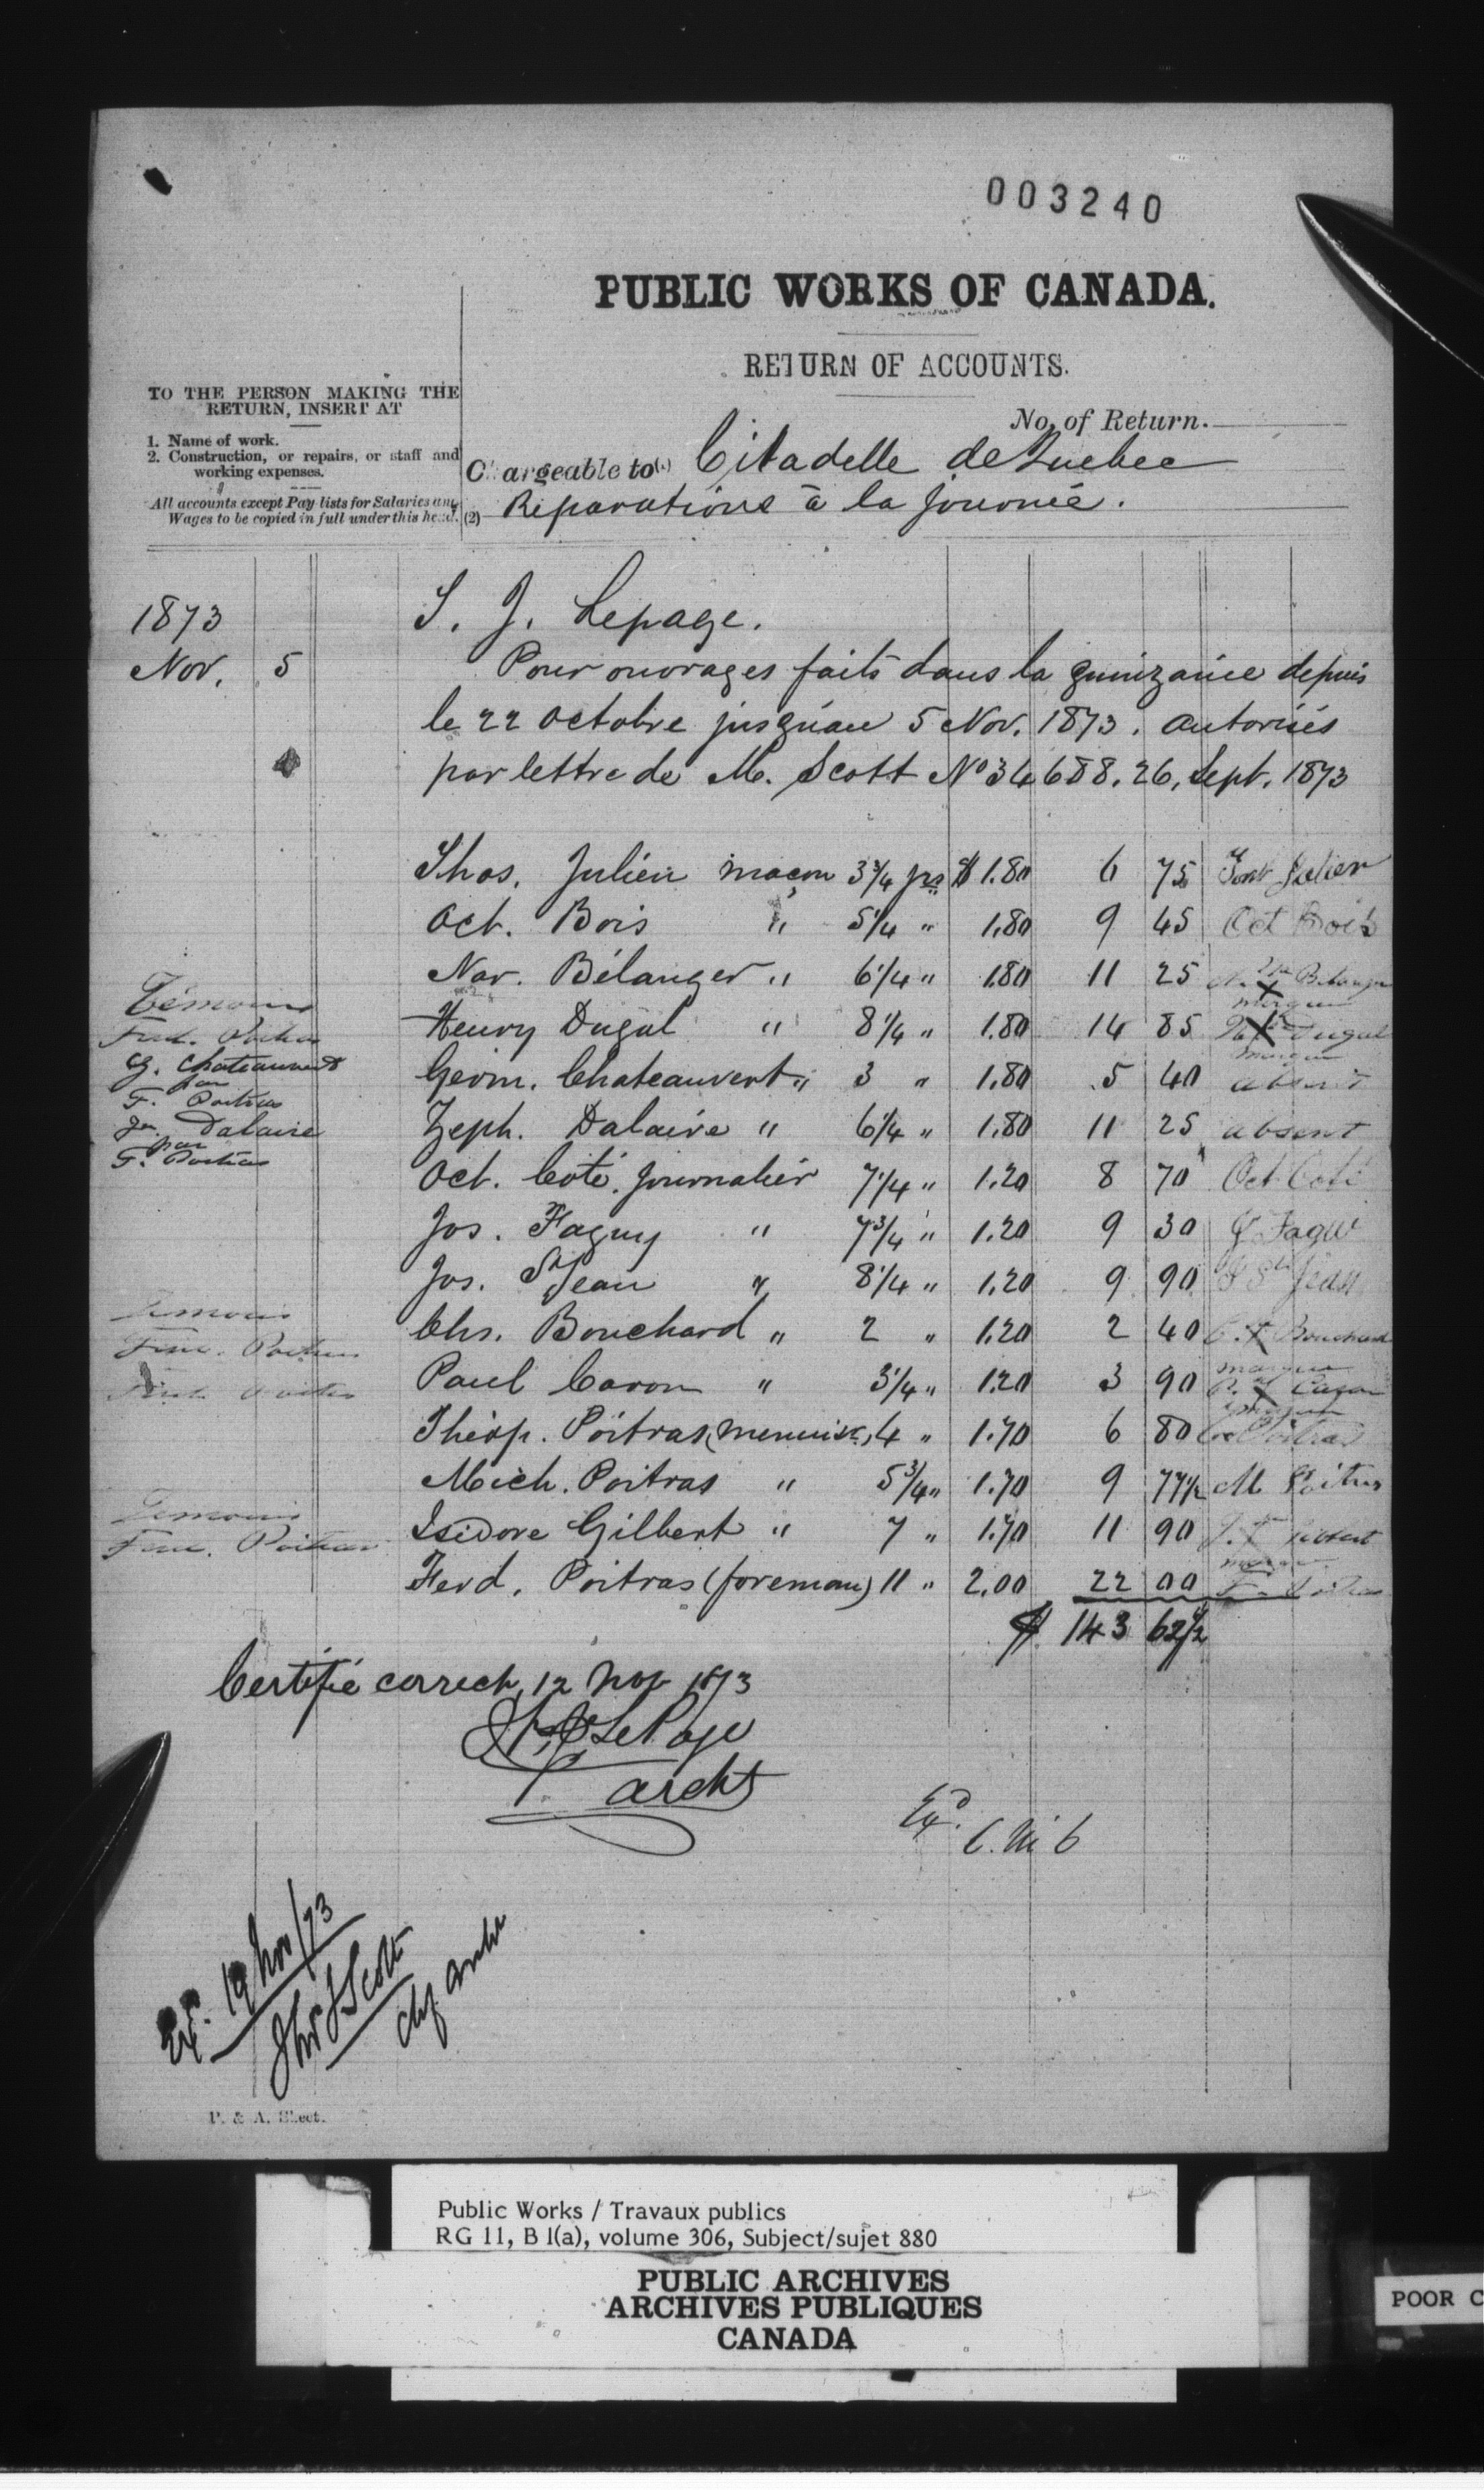 003240
PUBLIC WORKS OF CANADA.
RETURN OF ACCOUNTS.
TO THE PERSON MAKING THE
RETURN, INSERT AT
1. Name of work.
2. Construction, or repairs, or staff and
working expenses.
All accounts except Pay lists for Salaries and
Wages to be copied in full under this head.
No. of Return.
Chargeable to (1) Citadelle de Quebec
(2) Réparations à la journée.
1873
Nov. 5
S. J. Lepage.
Pour ouvrages faits dans la quinzaine depuis
le 22 octobre jusqu'au 5 Nov. 1873. autorisés
par lettre de M. Scott No 34688. 26, Sept. 1873
Thos. Julien maçon 3 3/4 jrs $ 1.80 6 75
Oct. Bois " 5 1/4 " 1.80 9 45 Oct Bois
Nar. Bélanger " 6 1/4 " 1.80 11 25 Belanger
marque
Témoins
Henry Dugal " 8 1/4 " 1.80 14 85 X Dugal
marque
G. Chateauvert
par
F. Poitras
Germ. Chateauvert " 3 " 1.80 5 40 absent
Dalaire
par
F. Poitras
Zeph. Dalaire " 6 1/4 " 1.80 11 25 absent
Oct. Coté. journalier 7 1/4 " 1.20 8 70 Oct Coté
Jos. Faguy " 7 3/4 " 1.20 9 30 J Fagu
Jos. St Jean " 8 1/4 " 1.20 9 90 J St Jean
Temoins
Chs. Bouchard " 2 " 1.20 2 40 C. X Bouchard
marque
Paul Caron " 3 1/4 " 1.20 3 90 P. X Caron
marque
Théop. Poitras (menuisr.) 4 " 1.70 6 80 Poitras
Mich. Poitras " 5 3/4 " 1.70 9 77 1/2 M Poitras
Temoins
Poitras
Isidore Gilbert " 7 " 1.70 11 90
Ferd. Poitras (foreman) 11 " 2.00 22 00 F. Poitras
$ 143 62 1/2
Certifié correct, 12 Nov 1873
LePage
archt
Exd.
19 Nov/73
Scott
P. & A. Sheet.
Public Works / Travaux publics
RG 11, B 1(a), volume 306, Subject/sujet 880
PUBLIC ARCHIVES
ARCHIVES PUBLIQUES
CANADA
POOR C